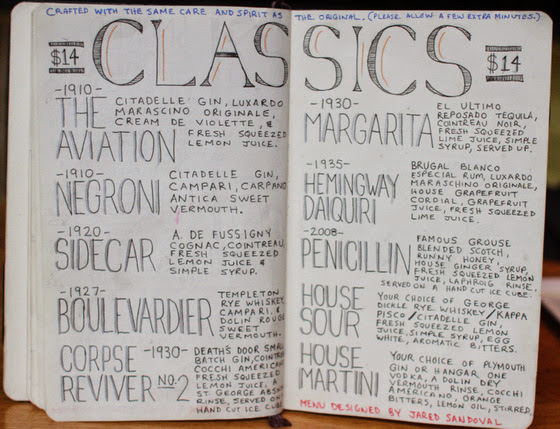 CRAFTED WITH THE SAME CARE AND SPIRIT AS THE ORIGINAL. (PLEASE ALLOW A FEW EXTRA MINUTES.)
$14 CLASSICS $14
-1910-
THE AVIATION
CITADELLE GIN, LUXARDO
MARASCINO ORIGINALE,
CREAM DE VIOLETTE, &
FRESH SQUEEZED
LEMON JUICE.
-1910-
NEGRONI
CITADELLE GIN,
CAMPARI, CARPANO
ANTICA SWEET
VERMOUTH.
-1920-
SIDECAR
A. DE FUSSIGNY
COGNAC, COINTREAU,
FRESH SQUEEZED
LEMON JUICE &
SIMPLE SYRUP.
-1927-
BOULEVARDIER
TEMPLETON
RYE WHISKEY,
CAMPARI, &
DOLIN ROUGE
SWEET
VERMOUTH.
CORPSE -1930-
REVIVER NO. 2
DEATH'S DOOR SMALL
BATCH GIN, COINTREAU
COCCHI AMERICANO
FRESH SQUEEZED
LEMON JUICE, A
ST GEORGE ABSINTHE
RINSE, SERVED ON
HAND CUT ICE CUBE
-1930-
MARGARITA
EL ULTIMO
REPOSADO TEQUILA,
COINTREAU NOIR,
FRESH SQUEEZED
LIME JUICE, SIMPLE
SYRUP, SERVED UP.
-1935-
HEMINGWAY
DAIQUIRI
BRUGAL BLANCO
ESPECIAL RUM, LUXARDO
MARASCHINO ORIGINALE,
HOUSE GRAPEFRUIT
CORDIAL, GRAPEFRUIT
JUICE, FRESH SQUEEZED
LIME JUICE.
-2008-
PENICILLIN
FAMOUS GROUSE
BLENDED SCOTCH,
RUNNY HONEY,
HOUSE GINGER SYRUP,
FRESH SQUEEZED LEMON
JUICE, LAPHROIG RINSE.
SERVED ON A HAND CUT ICE CUBE.
HOUSE
SOUR
YOUR CHOICE OF GEORGE
DICKLE RYE WHISKEY/KAPPA
PISCO/CITADELLE GIN,
FRESH SQUEEZED LEMON
JUICE, SIMPLE SYRUP, EGG
WHITE, AROMATIC BITTERS.
HOUSE
MARTINI
YOUR CHOICE OF PLYMOUTH
GIN OR HANGAR ONE
VODKA, A DOLIN DRY
VERMOUTH RINSE, COCCHI
AMERICANO, ORANGE
BITTERS, LEMON OIL, STIRRED.
MENU DESIGNED BY JARED SANDOVAL